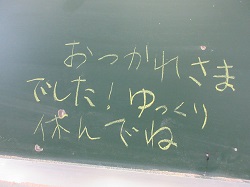 おつかれさま
でした!ゆっくり
休んでね